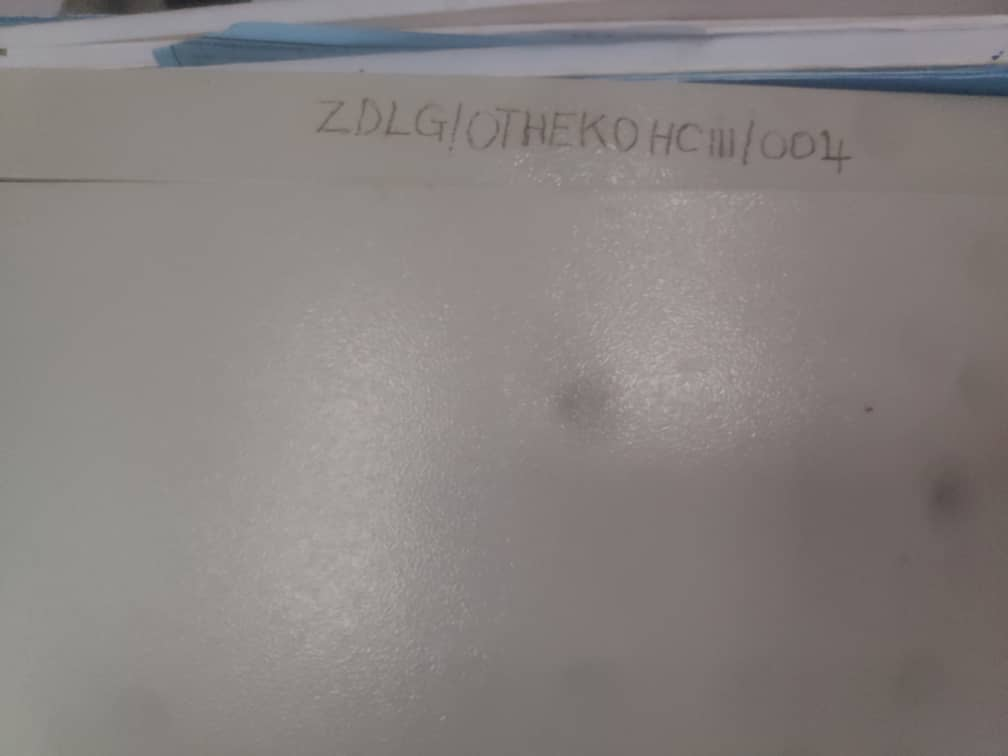 ZDLG/OTHEKO HC iii/004